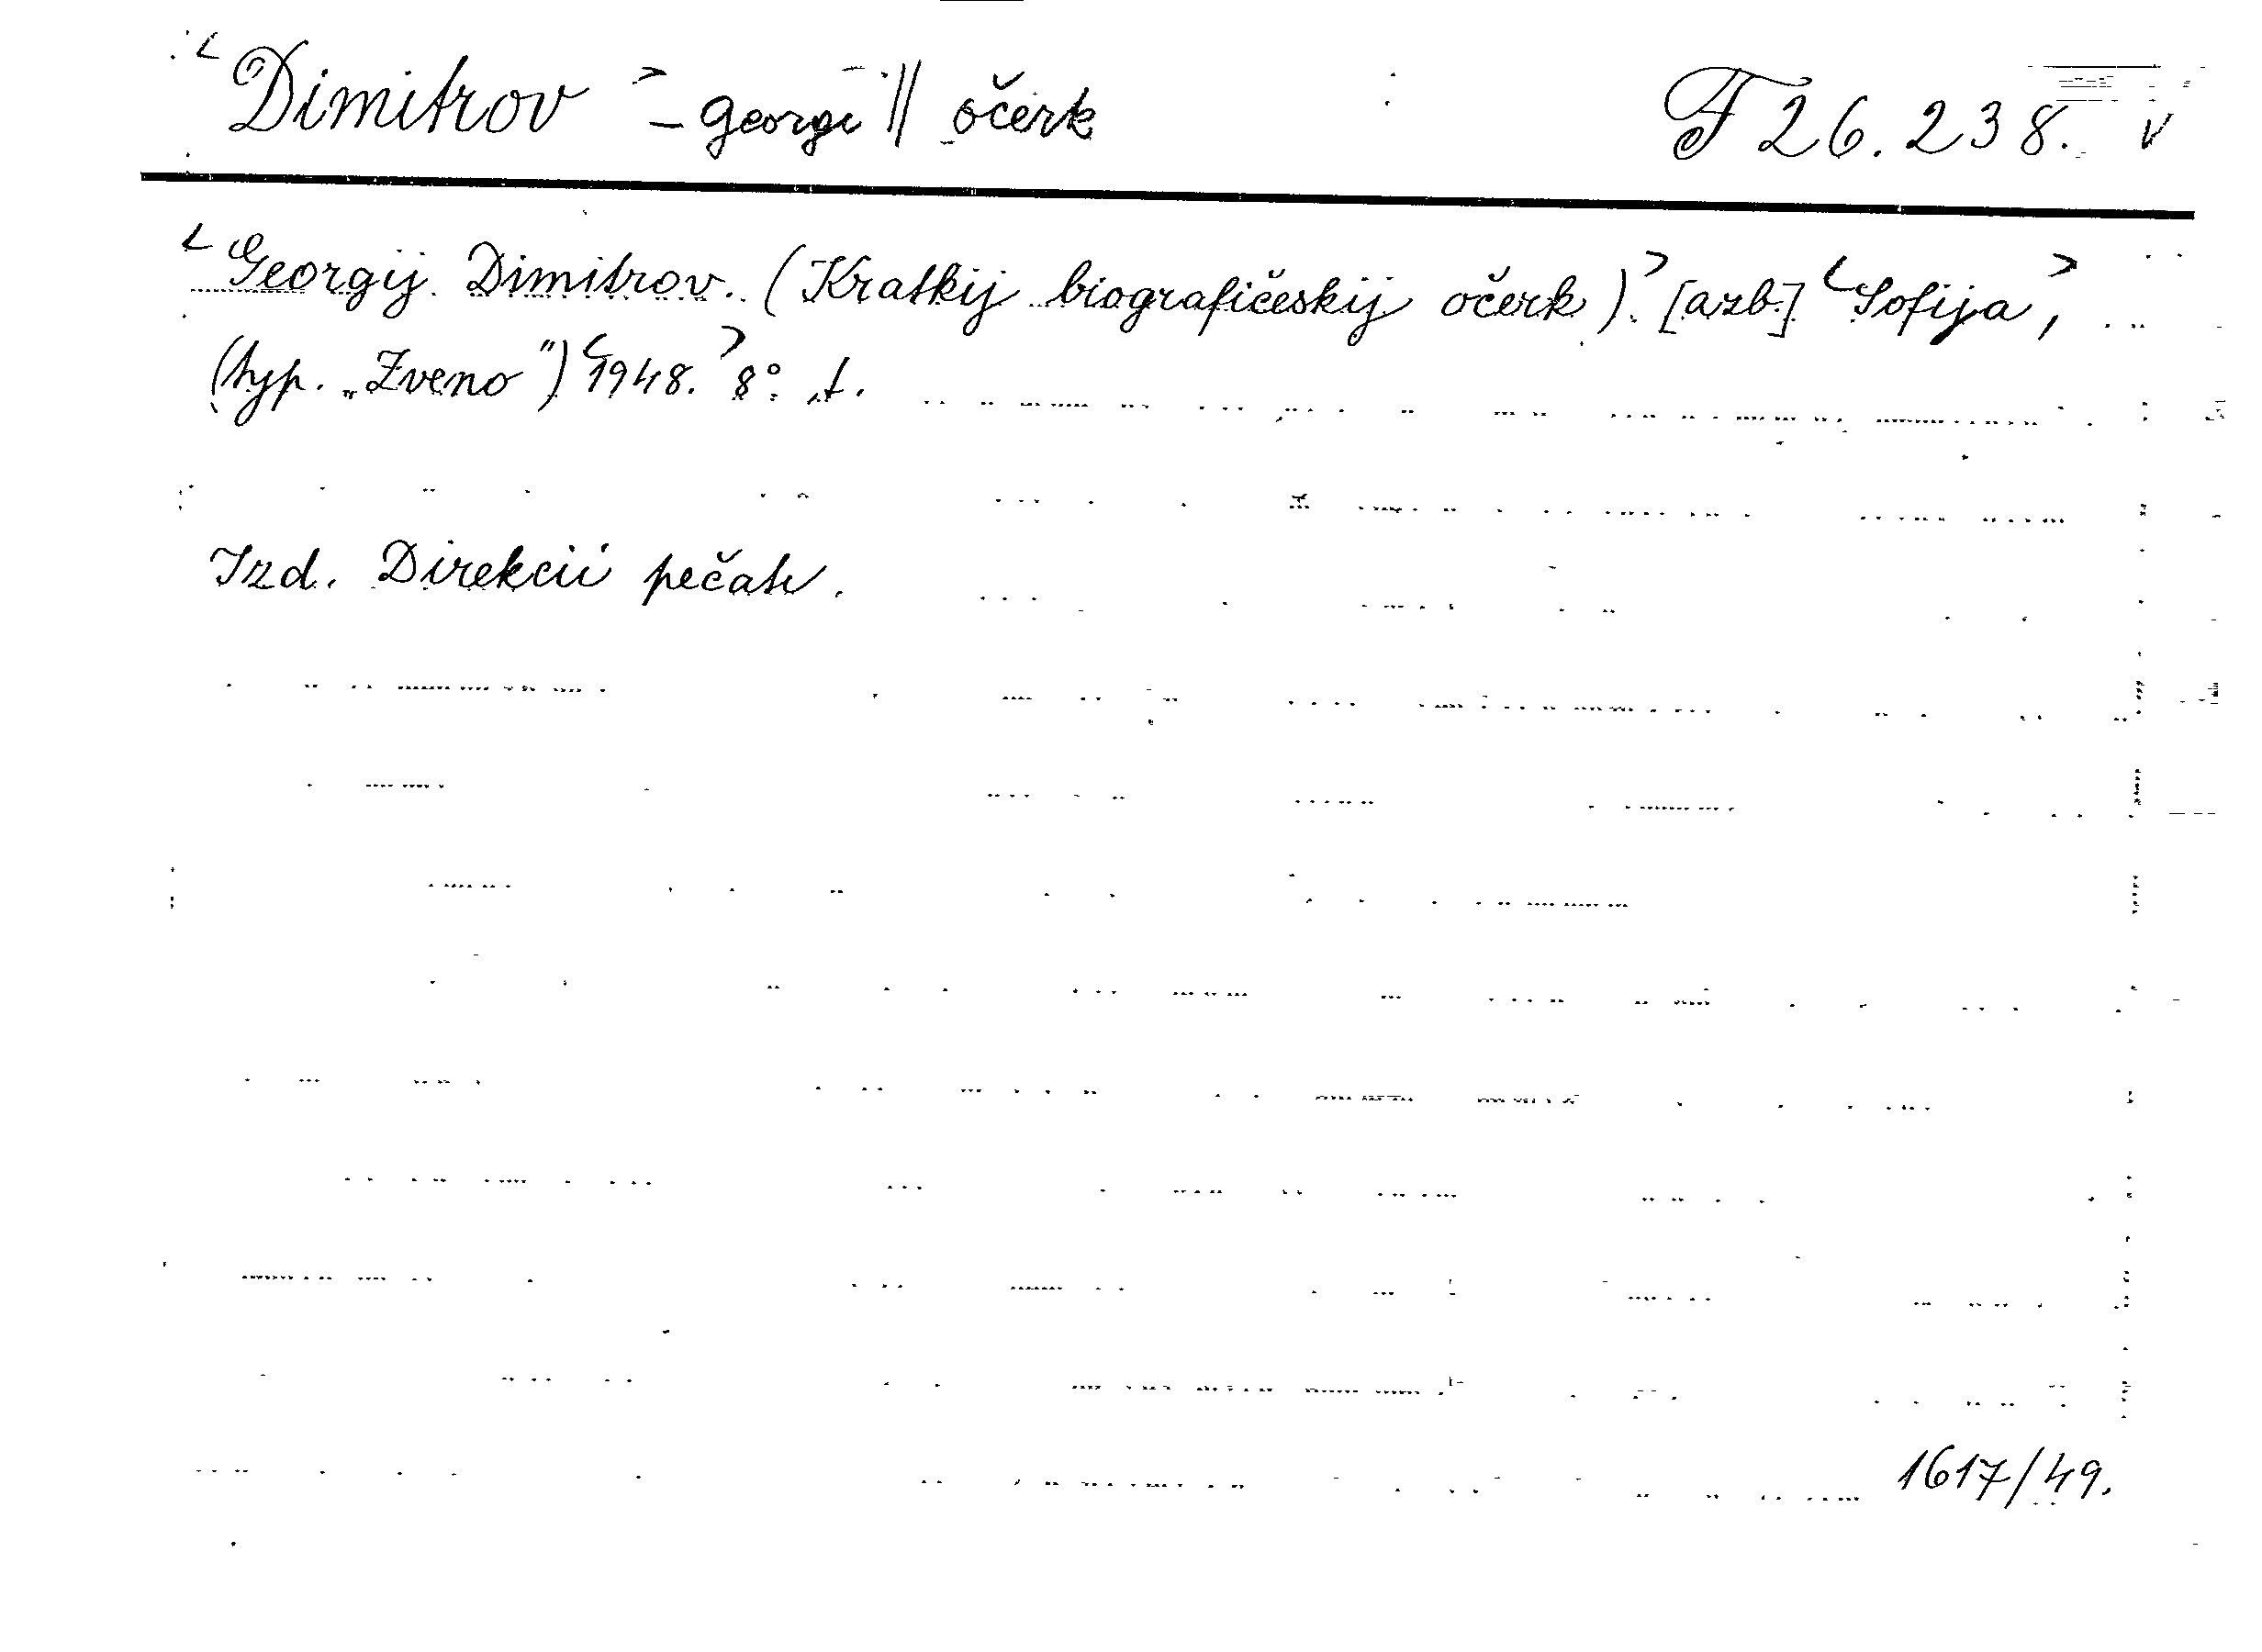 <Dimitrov> - Georgi || očerk F 26.238. v
<Georgij Dimitrov. (Kratkij biografičeskij očerk).> [azb.] <Sofija,>
(typ. „Zveno") <1948.> 8°. t.
Izd. Direkcii pečati.
1617/49.